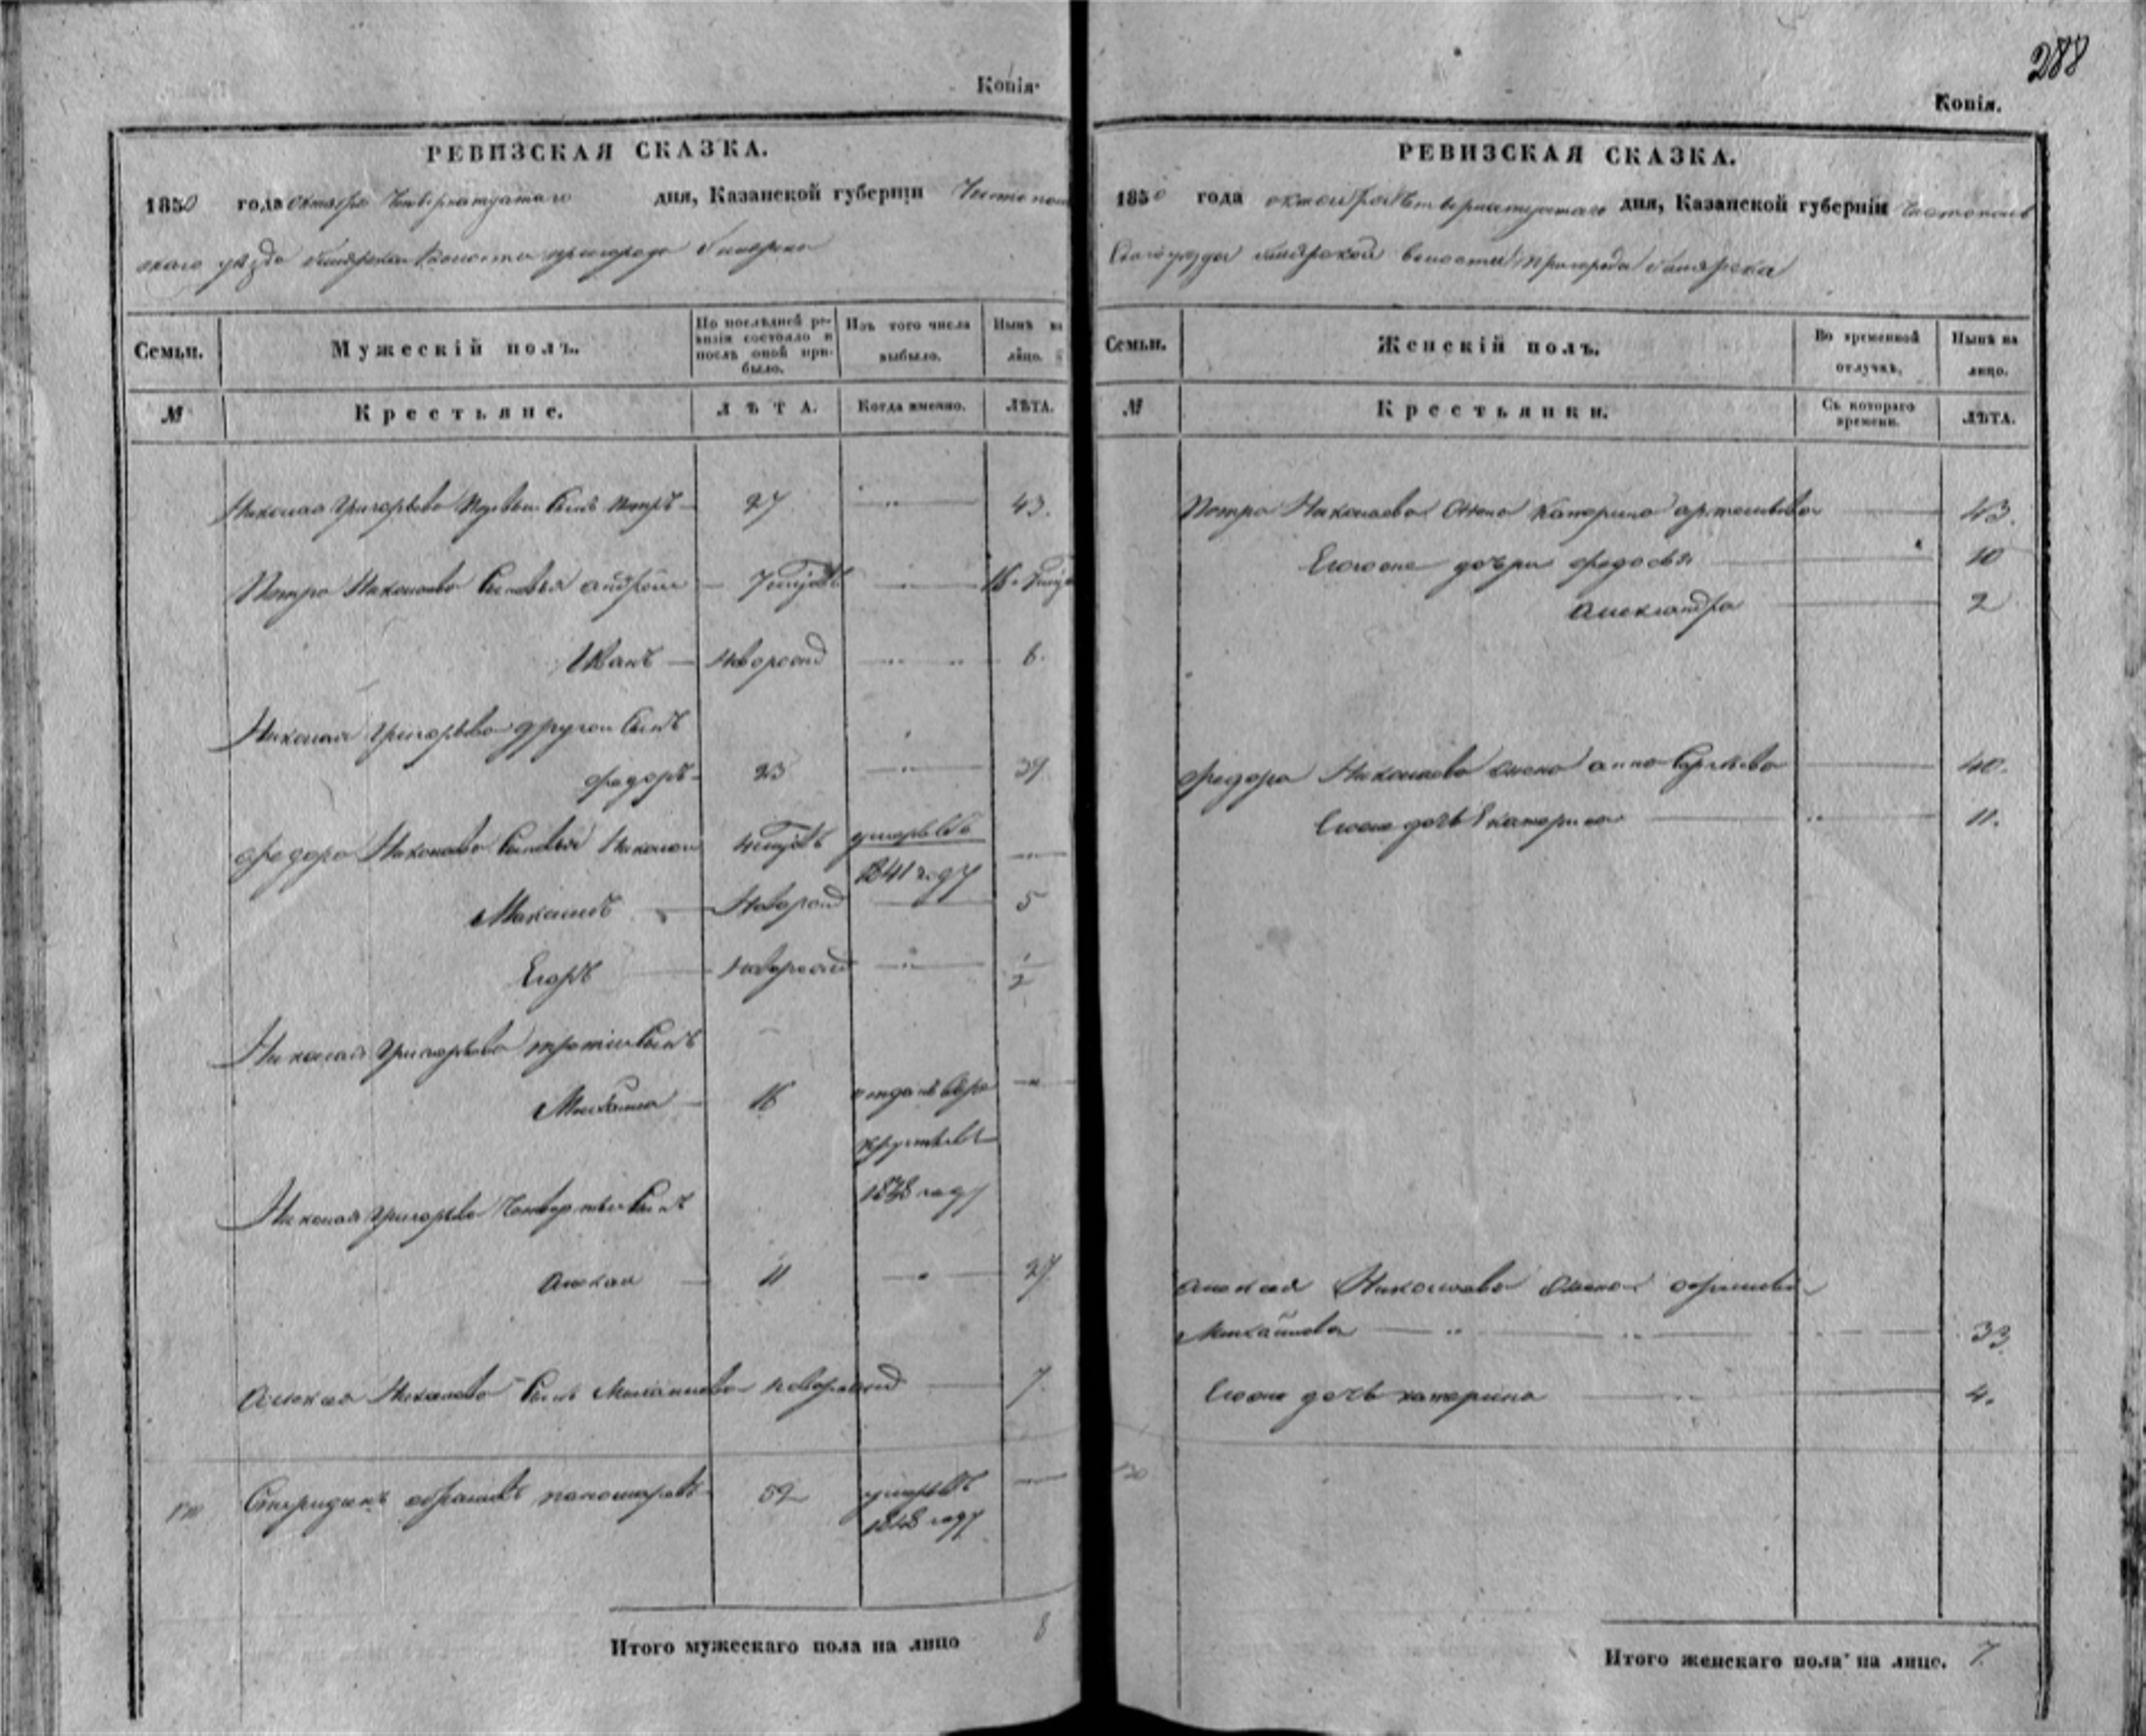 Копія.
РЕВИЗСКАЯ СКАЗКА.
1850 года октября четвертнатцатаго дня, Казанской губерніи Чистополь
скаго уѣзда билярской волости пригорода билярска
Семьи. Мужескій полъ. По послѣдней ревизіи состояло и послѣ оной прибыло. Изъ того числа выбыло. Нынѣ на лицо.
№ Крестьяне. ЛѢТА. Когда именно. ЛѢТА.
Николая Григорьева первои сынъ Петръ 27 43.
Петра Николаева сыновья андреи 7
Иванъ новорожд 6.
Николая Григорьева другои сынъ
федоръ 23 39
федора Николаева сыновья Николаи умеръ въ
1841 году
Максимъ новорожд 5
Егоръ новорожд 1/2
Николая Григорьева третіи сынъ
Михаила 16 отданъ в ре
круты въ
1838 году
Николая Григорьева четвертыи сынъ
алексеи 11 27
алексея Николаева сынъ новорожд 7
Спиридонъ 52 умеръ въ
1848 году
Итого мужескаго пола на лицо 8
288
Копія.
РЕВИЗСКАЯ СКАЗКА.
1850 года октября четвертнатцатаго дня, Казанской губерніи Чистополь
скаго уезда билярской волости пригорода билярска
Семьи. Женскій полъ. Во временной отлучкѣ. Нынѣ на лицо.
№ Крестьянки. Съ котораго времени. ЛѢТА.
Петра Николаева жена катерина артемьева 43.
Ево оне дочери федосья 10
александра 2
федора Николаева жена анна Сергѣева 40.
Ево оне дочь Екатерина 11.
алексея Николаева жена
Михаилова 33.
Ево оне дочь катерина 4.
Итого женскаго пола на лицо. 7.